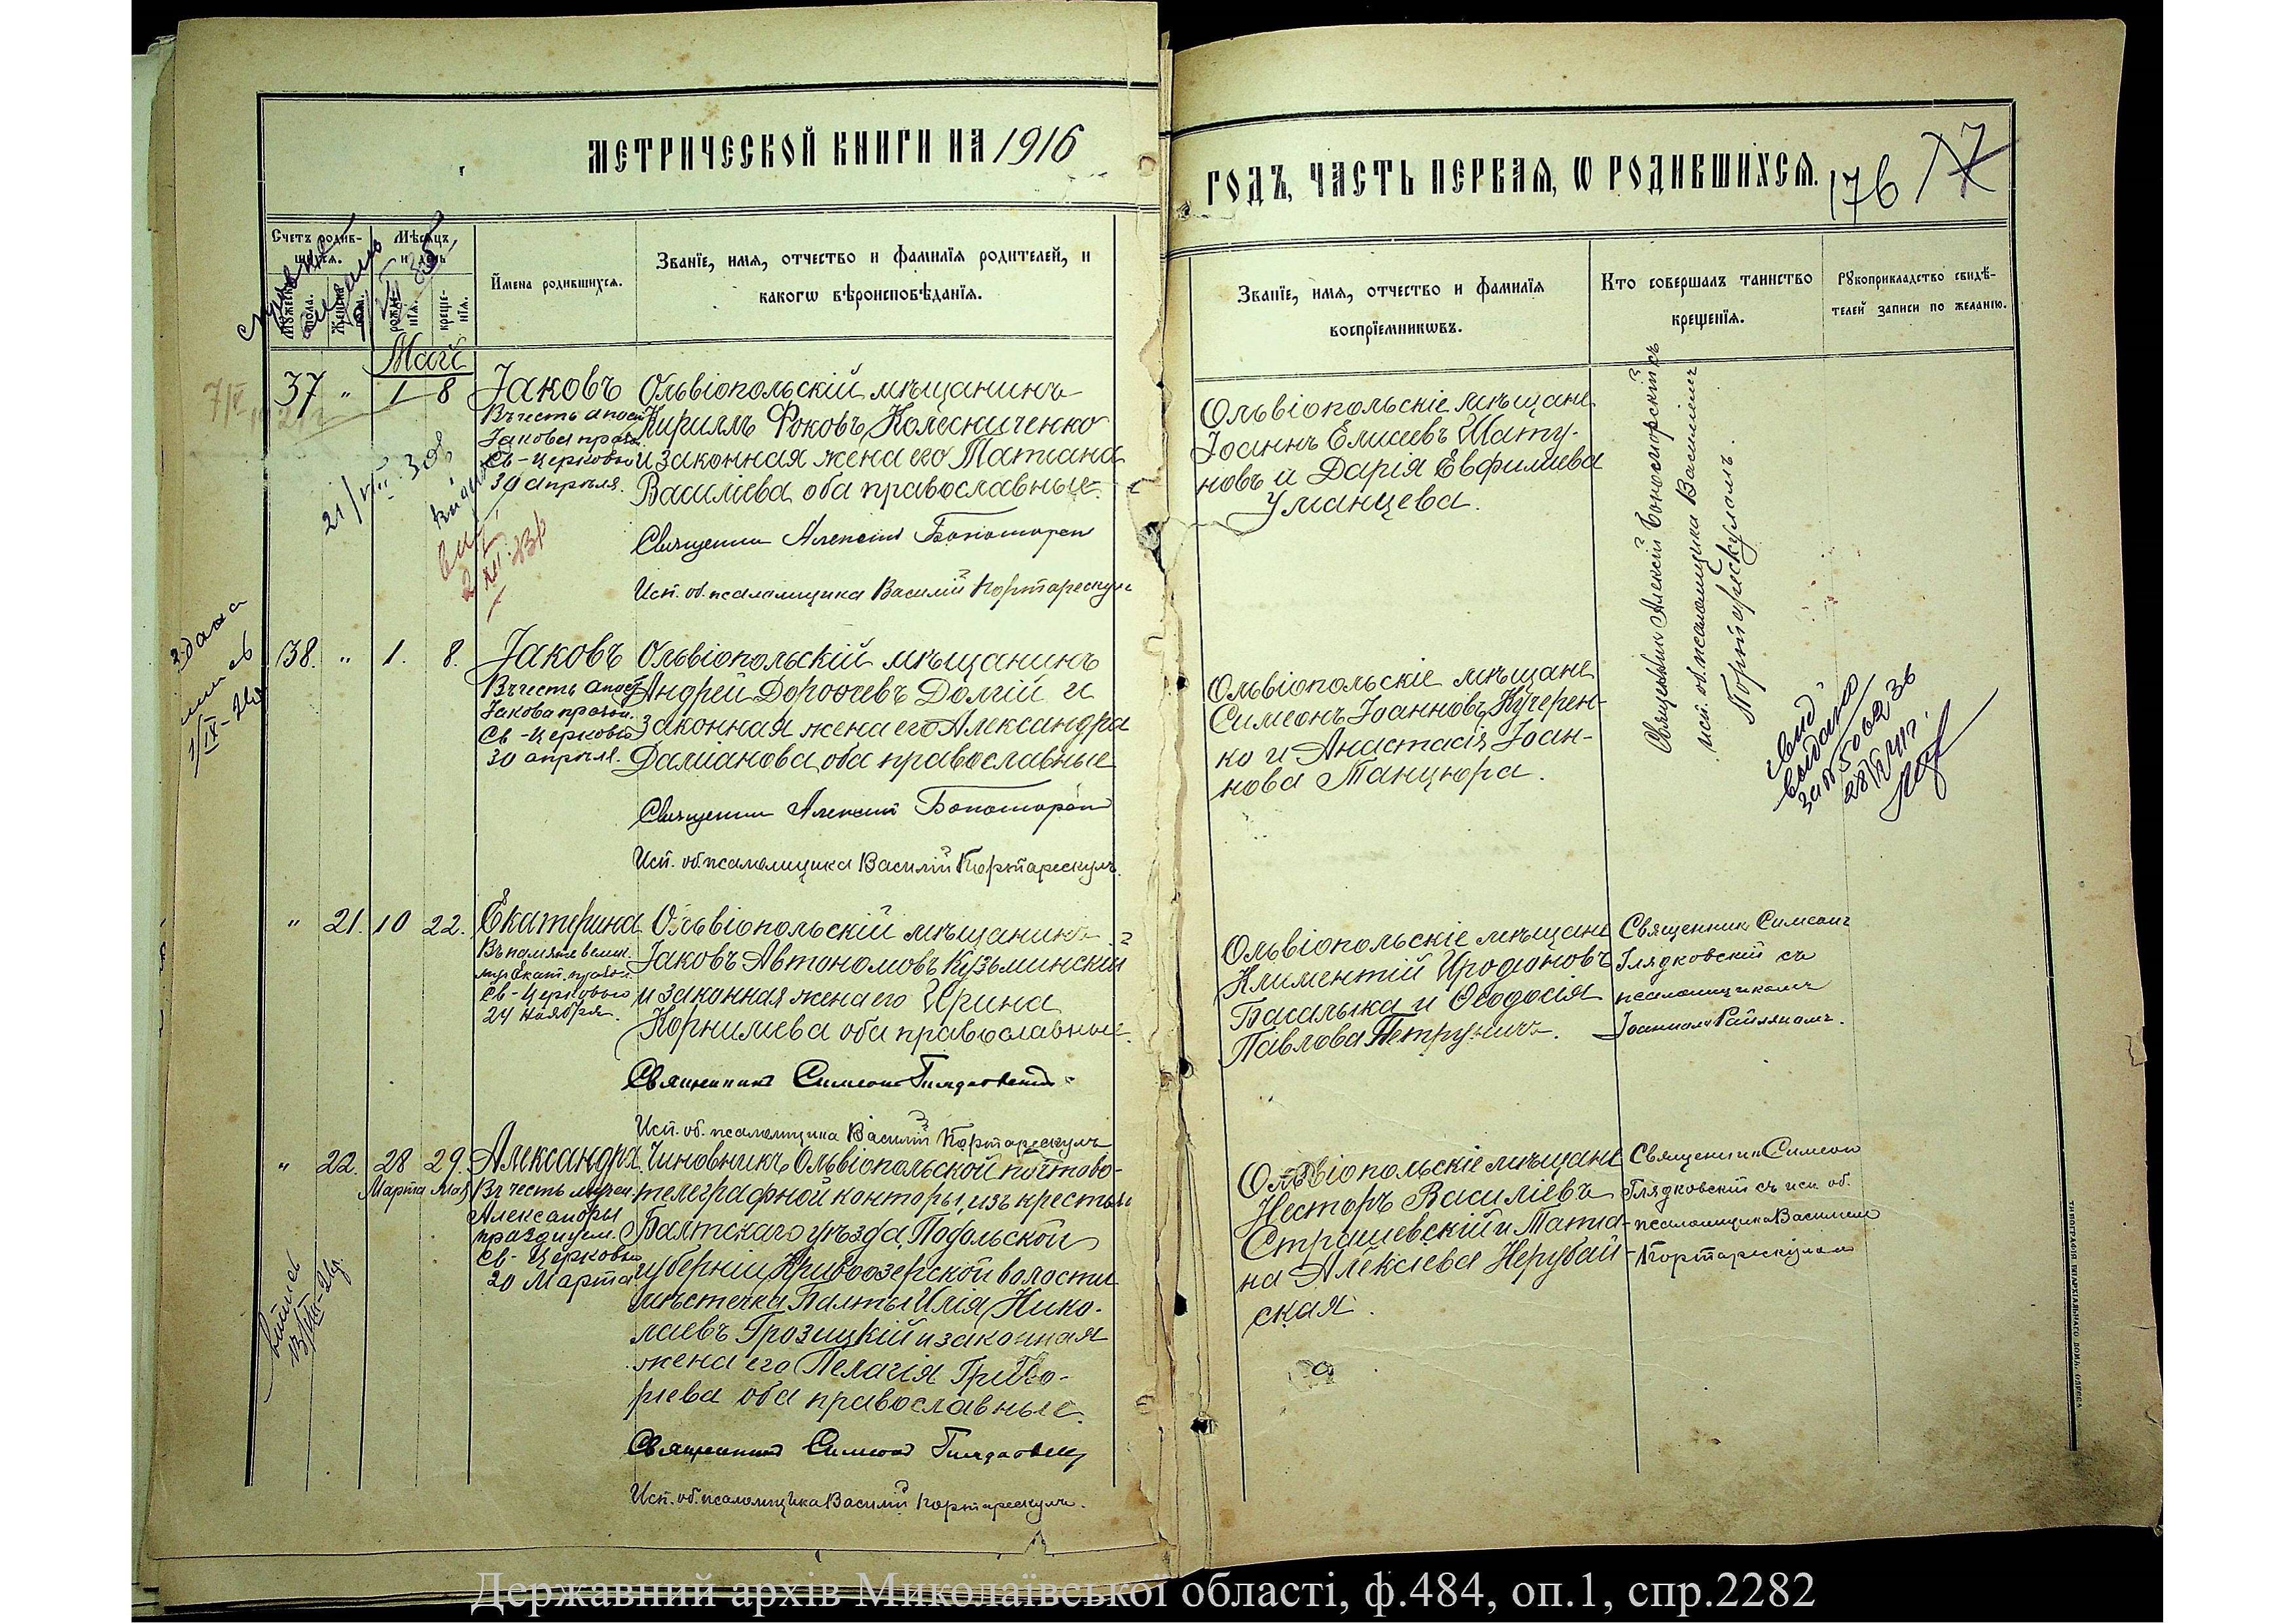 МЕТРИЧЕСКОЙ КНИГИ НА 1916
ГОДЪ, ЧАСТЬ ПЕРВАѦ, Ѡ РОДИВШИХСѦ.
176
Счетъ родившихсѧ.
Мѣсѧцъ и день
Имена родившихсѧ.
Званїе, имѧ, отчество и фамилїѧ родителей, и
какогѡ вѣроисповѣданїѧ.
Мужеска пола.
Женска пола.
рожденїѧ.
крещенїѧ.
Званїе, имѧ, отчество и фамилїѧ
воспрїемникѡвъ.
Кто совершалъ таинство
крещенїѧ.
Рꙋкоприкладство свидѣтелей записи по желанїю.
Май
37 " 1 8
Іаковъ
Въ честь апост.
Іакова празд.
Св-Церковью
30 апрѣля.
Ольвіопольскій мѣщанинъ
Кириллъ Фоковъ Колесниченко
и законная жена его Татіана
Василіева оба православные.
Священник Алексій
Исп. об. псаломщика Василій Портарескулъ
Ольвіопольскіе мѣщане
Іоаннъ Елисеевъ Шату-
новъ и Дарія Евфиміева
Уманцева.
Священник Алексій съ
исп. об. псаломщика Василіемъ
Портарескуломъ.
38. " 1. 8.
Іаковъ
Въ честь апост.
Іакова празд.
Св-Церковью
30 апрѣля.
Ольвіопольскій мѣщанинъ
Андрей Дороѳеевъ Долгій и
законная жена его Александра
Даміанова, оба православные
Священник Алексій
Исп. об. псаломщика Василій Портарескулъ.
Ольвіопольскіе мѣщане
Симеонъ Іоанновъ Кучерен-
ко и Анастасія Іоан-
нова Танцюра.
свид.
выдано
" 21. 10 22.
Екатерина
Въ память велик.
муч. Екат. празд.
Св-Церковью
24 ноября.
Ольвіопольскій мѣщанинъ
Іаковъ Автономовъ Кузьминскій
и законная жена его Ирина
Корниліева оба православные.
Священникъ Симеонъ Глядковскій
Исп. об. псаломщика Василій Портарескулъ
Ольвіопольскіе мѣщане
Климентій Иродіоновъ
Басалыка и Ѳеодосія
Павлова Петруничъ.
Священникъ Симеонъ
Глядковскій съ
псаломщикомъ
Іоанномъ
" 22. 28 29.
Марта Мая
Александра
Въ честь мучен.
Александры
празднуем.
Св-Церковью
20 Марта
Чиновникъ Ольвіопольской почтово-
телеграфной конторы, изъ крестьянъ
Балтскаго уѣзда, Подольской
губерніи Кривоозерской волости
мѣстечка Балты Илія Нико-
лаевъ Грозицкій и законная
жена его Пелагія Григо-
рьева оба православные.
Священникъ Симеонъ Глядковскій
Исп. об. псаломщика Василій Портарескулъ.
Ольвіопольскіе мѣщане
Несторъ Василіевъ
Страшевскій и Татіа-
на Алексіева Нерубай-
ская.
Священникъ Симеон
Глядковскій съ исп. об.
псаломщика Василіем
Портарескулом
Державний архів Миколаївської області, ф.484, оп.1, спр.2282